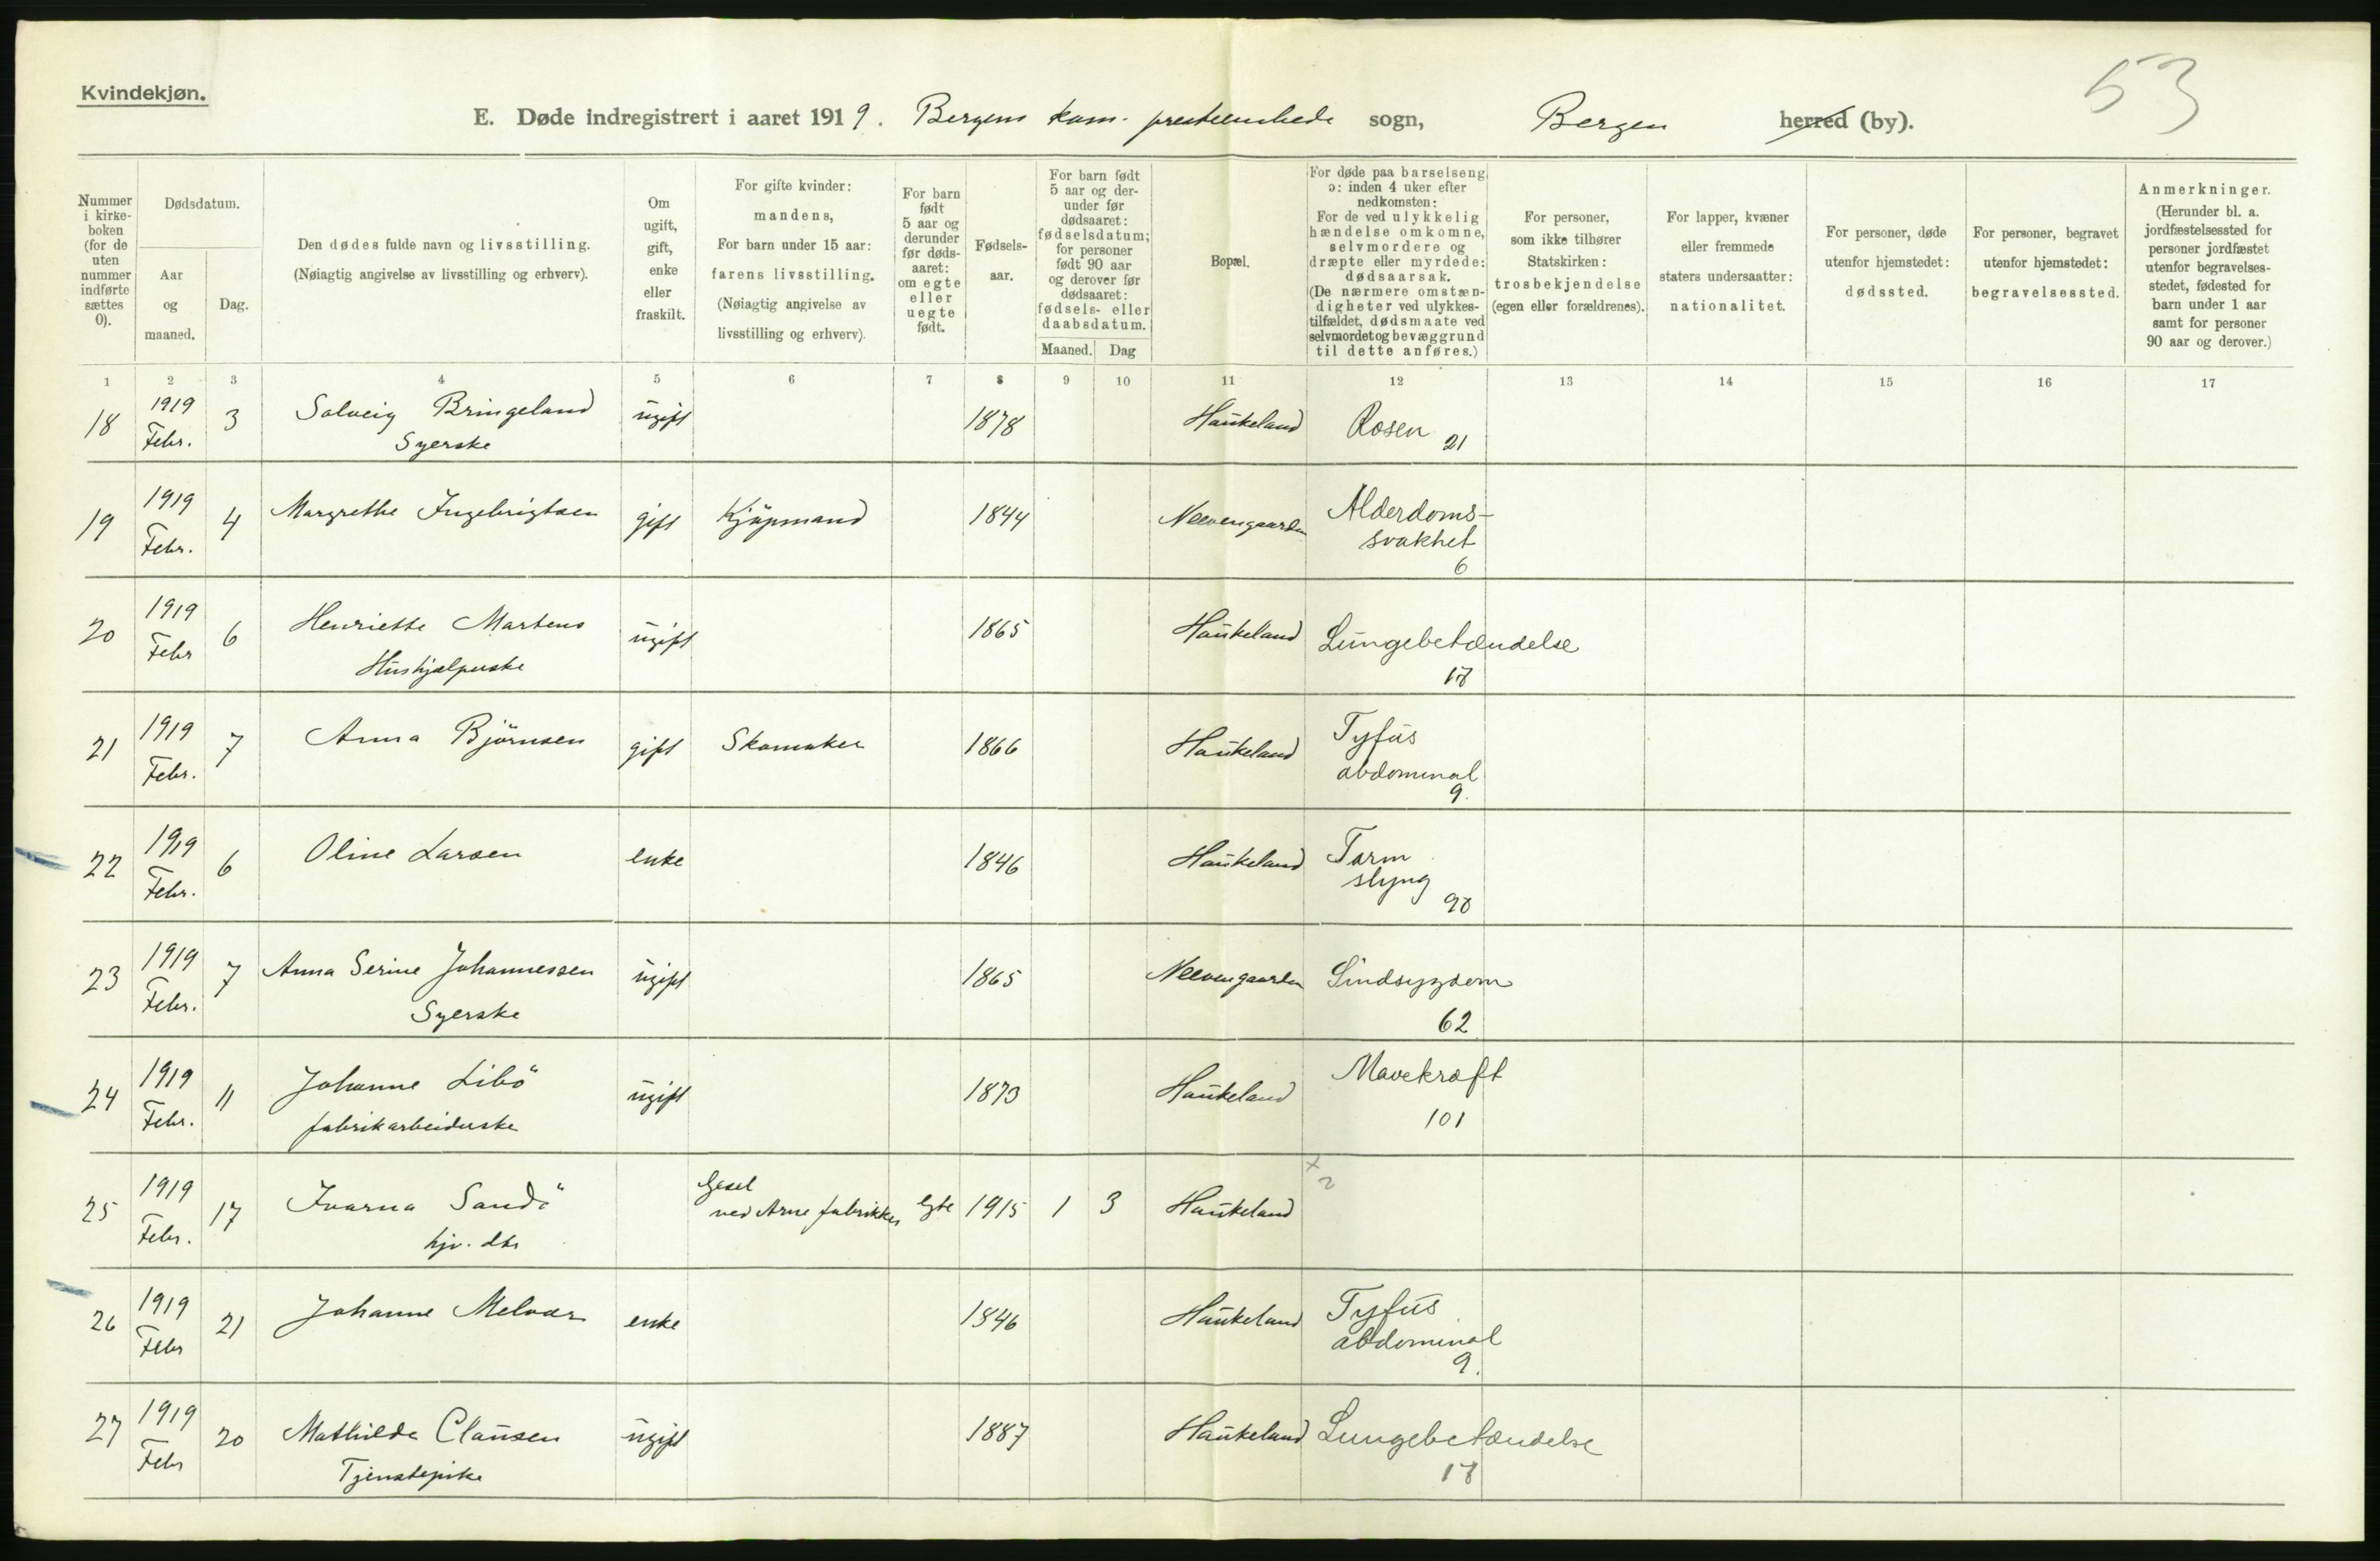 Kvindekjøn.
53
E. Døde indregistrert i aaret 1919. Bergens kom. presteembede sogn, Bergen herred (by).
Nummer i kirkeboken (for de uten nummer indførte sættes 0).
Dødsdatum.
Aar og maaned.
Dag.
Den dødes fulde navn og livsstilling.
(Nøiagtig angivelse av livsstilling og erhverv).
Om ugift, gift, enke eller fraskilt.
For gifte kvinder: mandens,
For barn under 15 aar: farens livsstilling.
(Nøiagtig angivelse av livsstilling og erhverv).
For barn født 5 aar og derunder før dødsaaret: om egte eller uegte født.
Fødselsaar.
For barn født 5 aar og derunder før dødsaaret: fødselsdatum; for personer født 90 aar og derover før dødsaaret: fødsels- eller daabsdatum.
Maaned. Dag
Bopæl.
For døde paa barselseng ɔ: inden 4 uker efter nedkomsten: For de ved ulykkelig hændelse omkomne, selvmordere og dræpte eller myrdede: dødsaarsak. (De nærmere omstændigheter ved ulykkestilfældet, dødsmaate ved selvmordet og bevæggrund til dette anføres.)
For personer, som ikke tilhører Statskirken: trosbekjendelse (egen eller forældrenes).
For lapper, kvæner eller fremmede staters undersaatter: nationalitet.
For personer, døde utenfor hjemstedet: dødssted.
For personer, begravet utenfor hjemstedet: begravelsessted.
Anmerkninger. (Herunder bl. a. jordfæstelsessted for personer jordfæstet utenfor begravelsesstedet, fødested for barn under 1 aar samt for personer 90 aar og derover.)
1 2 3 4 5 6 7 8 9 10 11 12 13 14 15 16 17
18 1919 Febr. 3 Solveig Bringeland ugift 1878 Haukeland Rosen 21
Syerske
19 1919 Febr. 4 Margrethe Ingebrigtsen gift Kjöpmand 1844 Neevengaarden Alderdoms-
svakhet
6
20 1919 Febr 6 Henriette Martens ugift 1865 Haukeland Lungebetændelse
Hushjælperske 17
21 1919 Febr. 7 Anna Björnsen gift Skomaker 1866 Haukeland Tyfus
abdominal
9.
22 1919 Febr. 6 Oline Larsen enke 1846 Haukeland Tarm
slyng
98
23 1919 Febr. 7 Anna Serine Johannessen ugift 1865 Neevengaarden Sindsygdom
Syerske 62
24 1919 Febr. 11 Johanne Libö ugift 1873 Haukeland Mavekræft
fabrikarbeiderske 101
25 1919 Febr. 17 Ivarna Sandö ved Arne fabrikker egte 1915 1 3 Haukeland
hjv. dtr
26 1919 Febr 21 Johanne Melvær enke 1846 Haukeland Tyfus
abdominal
9.
27 1919 Febr 20 Mathilde Clausen ugift 1887 Haukeland Lungebetændelse
Tjenstepike 17